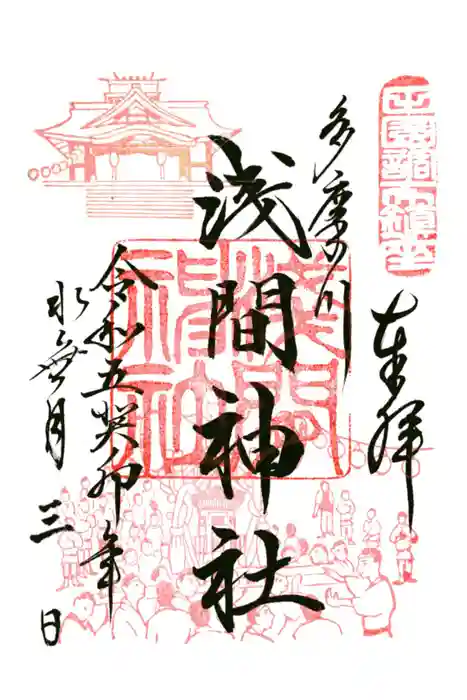 奉拝
多摩川
浅間神社
令和五癸卯年
水無月三日
浅間神社